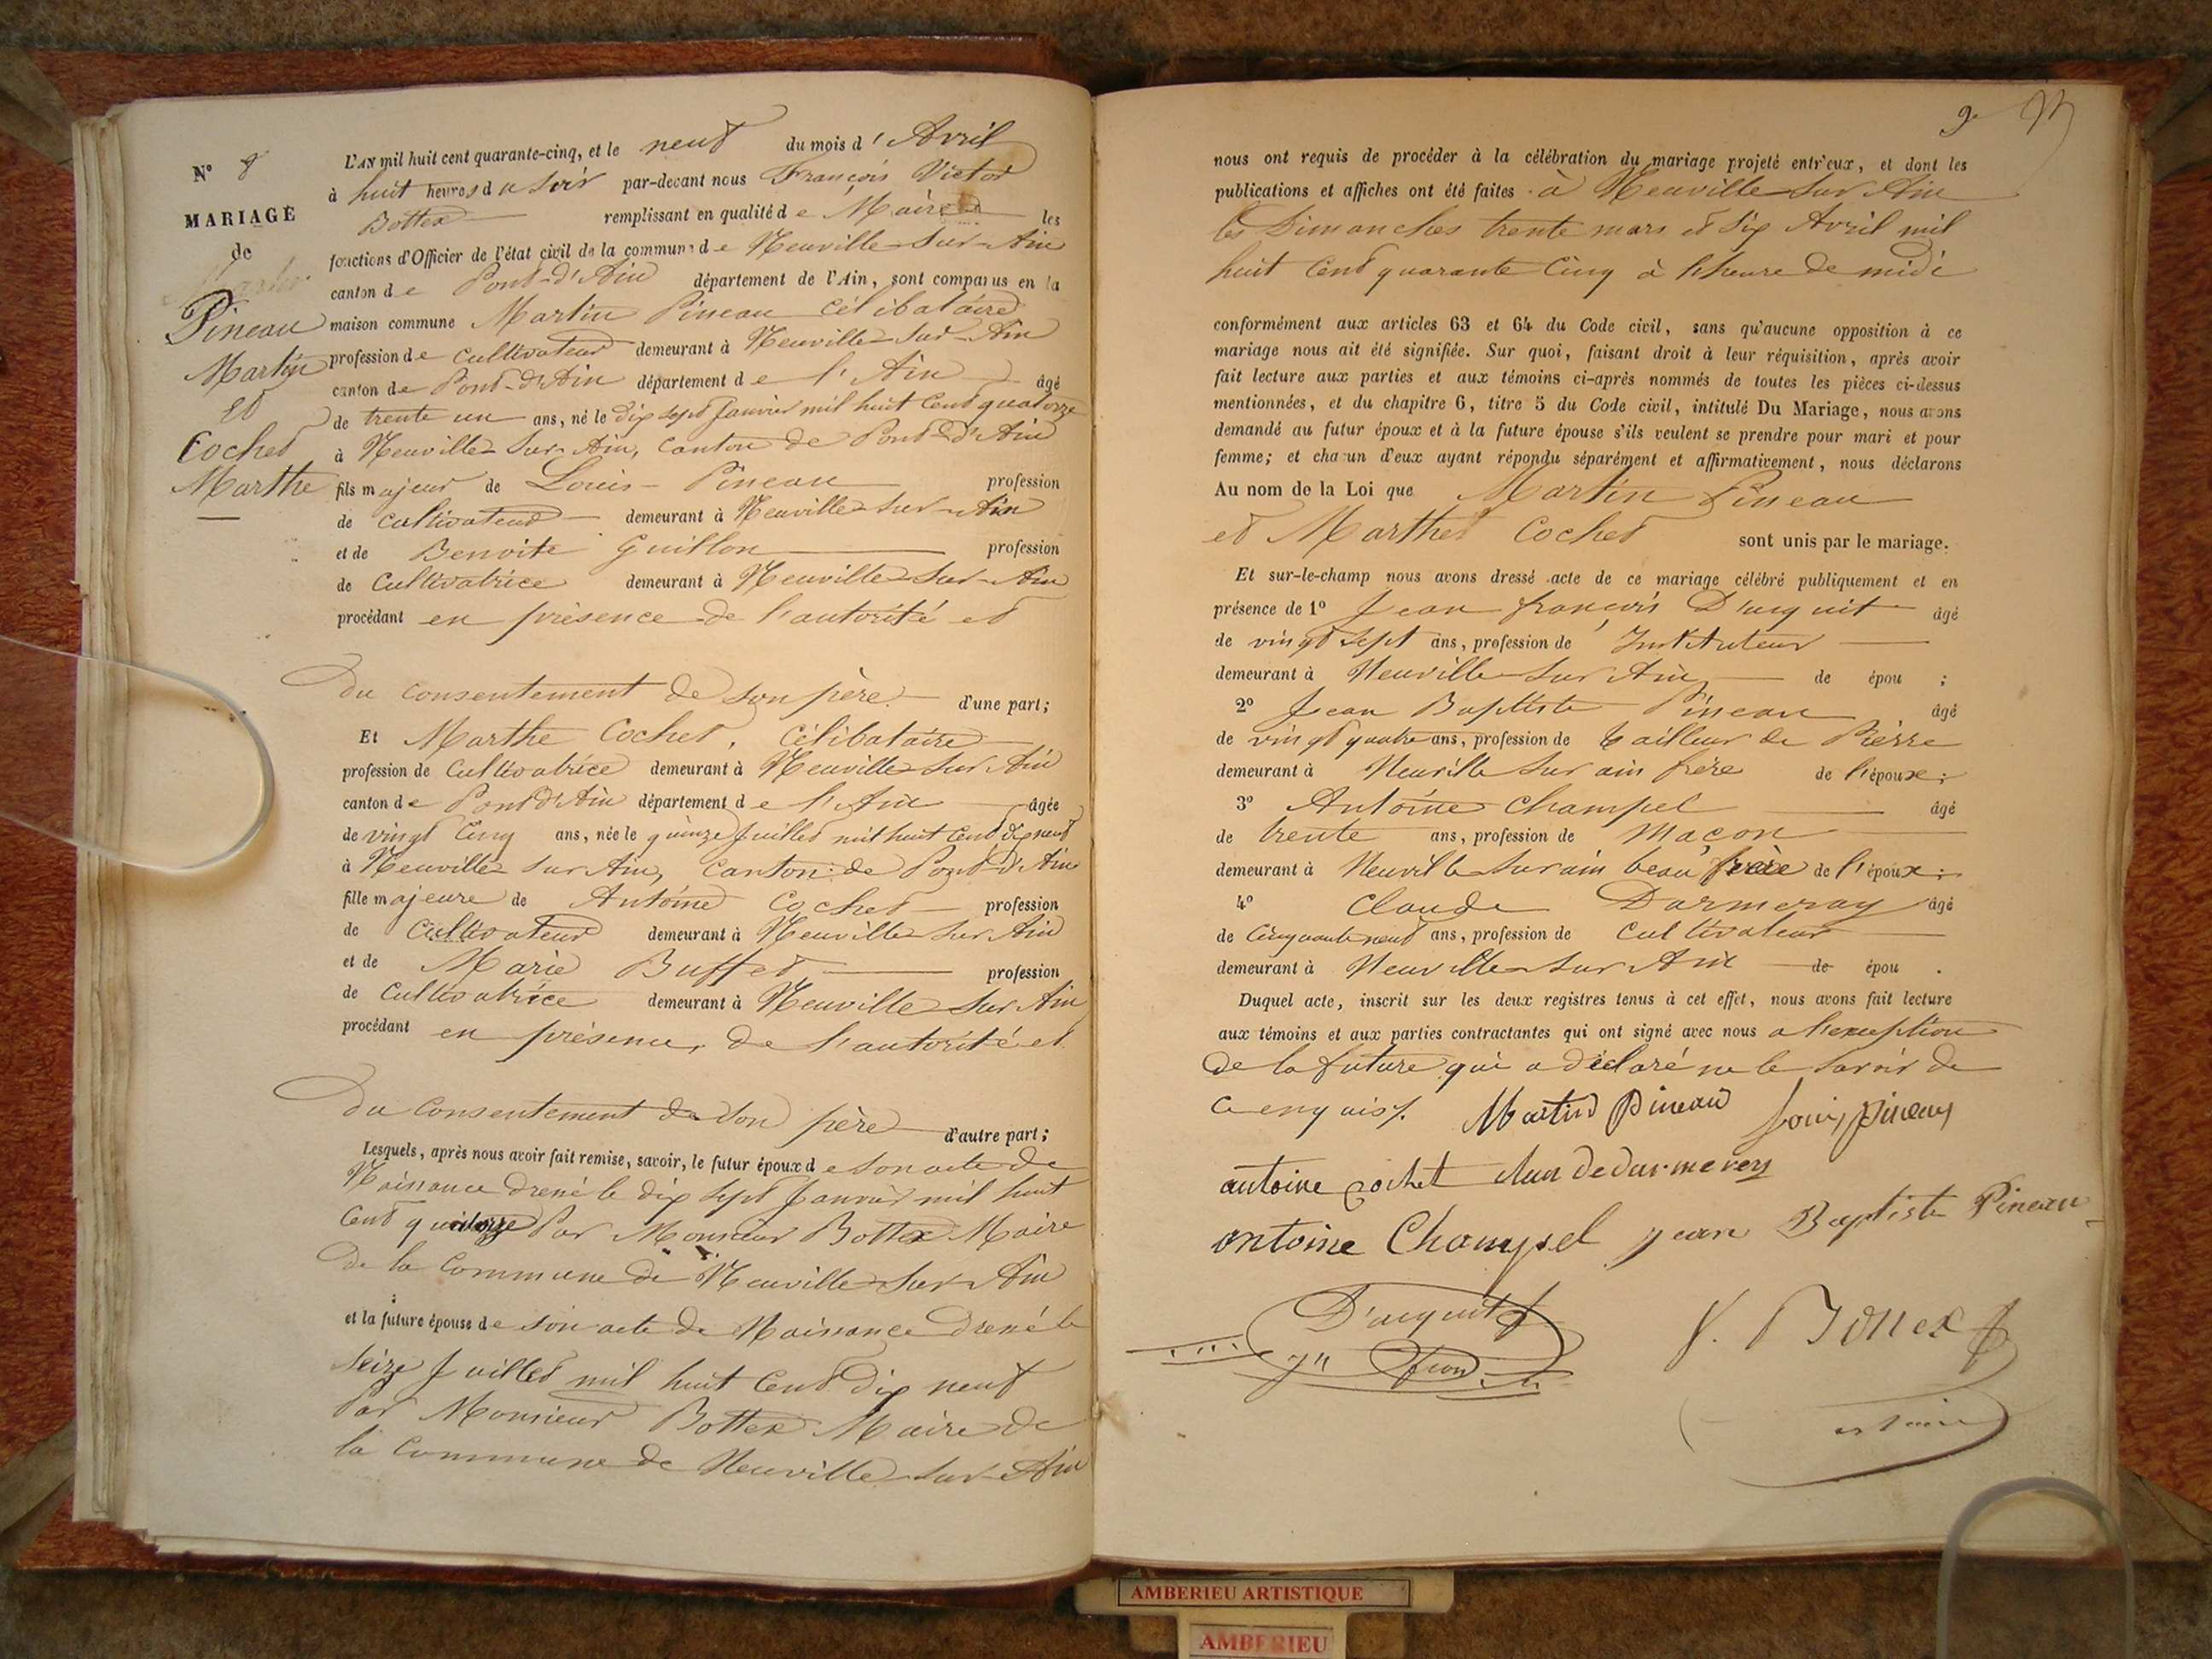 N° 8
MARIAGE
de
Pineau
Martin
et
Cochet
Marthe
L'AN mil huit cent quarante-cinq, et le neuf du mois d'Avril
à huit heures du soir par-devant nous François Victor
Bottex remplissant en qualité de Maire les
fonctions d'Officier de l'état civil de la commune de Neuville-sur-Ain
canton de Pont-d'Ain département de l'Ain, sont comparus en la
maison commune Martin Pineau célibataire
profession de cultivateur demeurant à Neuville-sur-Ain
canton de Pont-d'Ain département de l'Ain âgé
de trente un ans, né le dix sept Janvier mil huit cent quatorze
à Neuville sur Ain, canton de Pont-d'Ain
fils majeur de Louis Pineau profession
de cultivateur demeurant à Neuville-sur-Ain
et de Benoite Guillon profession
de Cultivatrice demeurant à Neuville-sur-Ain
procédant en présence de l'autorité et
Du consentement de son père d'une part;
Et Marthe Cochet, célibataire
profession de Cultivatrice demeurant à Neuville-sur-Ain
canton de Pont d'Ain département de l'Ain âgée
de vingt cinq ans, née le quinze Juillet mil huit cent dix neuf
à Neuville sur Ain, canton de Pont-d'Ain
fille majeure de Antoine Cochet profession
de Cultivateur demeurant à Neuville-sur-Ain
et de Marie Buffet profession
de Cultivatrice demeurant à Neuville-sur-Ain
procédant en présence, de l'autorité et
Du consentement de son père d'autre part;
Lesquels, après nous avoir fait remise, savoir, le futur époux de son acte de
Naissance dressé le dix sept Janvier mil huit
cent quatorze Par Monsieur Bottex Maire
De la Commune de Neuville-sur-Ain
et la future épouse de son acte de Naissance dressé le
seize Juillet mil huit cent dix neuf
Par Monsieur Bottex Maire de
la Commune de Neuville-sur-Ain
9
nous ont requis de procéder à la célébration du mariage projeté entr'eux, et dont les
publications et affiches ont été faites à Neuville-sur-Ain
les Dimanches trente mars et six Avril mil
huit cent quarante cinq à l'heure de midi
conformément aux articles 63 et 64 du Code civil, sans qu'aucune opposition à ce
mariage nous ait été signifiée. Sur quoi, faisant droit à leur réquisition, après avoir
fait lecture aux parties et aux témoins ci-après nommés de toutes les pièces ci-dessus
mentionnées, et du chapitre 6, titre 5 du Code civil, intitulé Du Mariage, nous avons
demandé au futur époux et à la future épouse s'ils veulent se prendre pour mari et pour
femme; et chacun d'eux ayant répondu séparément et affirmativement, nous déclarons
Au nom de la Loi que Martin Pineau
et Marthe Cochet sont unis par le mariage.
Et sur-le-champ nous avons dressé acte de ce mariage célébré publiquement et en
présence de 1° Jean françois D'urquit âgé
de vingt sept ans, profession de Instituteur
demeurant à Neuville sur Ain de épou ;
2° Jean Baptiste Pineau âgé
de vingt quatre ans, profession de tailleur de Pierre
demeurant à Neuville sur ain frère de l'époux;
3° Antoine Champel âgé
de trente ans, profession de Maçon
demeurant à Neuville sur ain beau frère de l'époux;
4° Claude Darmeray âgé
de Cinquante neuf ans, profession de Cultivateur
demeurant à Neuville-sur-Ain de épou .
Duquel acte, inscrit sur les deux registres tenus à cet effet, nous avons fait lecture
aux témoins et aux parties contractantes qui ont signé avec nous a l'exception
de la future qui a déclaré ne le savoir de
ce enquis /. Martin Pineau Louis pineau
antoine cochet
antoine Champel jean Baptiste Pineau
D'urquit
V. Bottex
AMBERIEU ARTISTIQUE
AMBERIEU